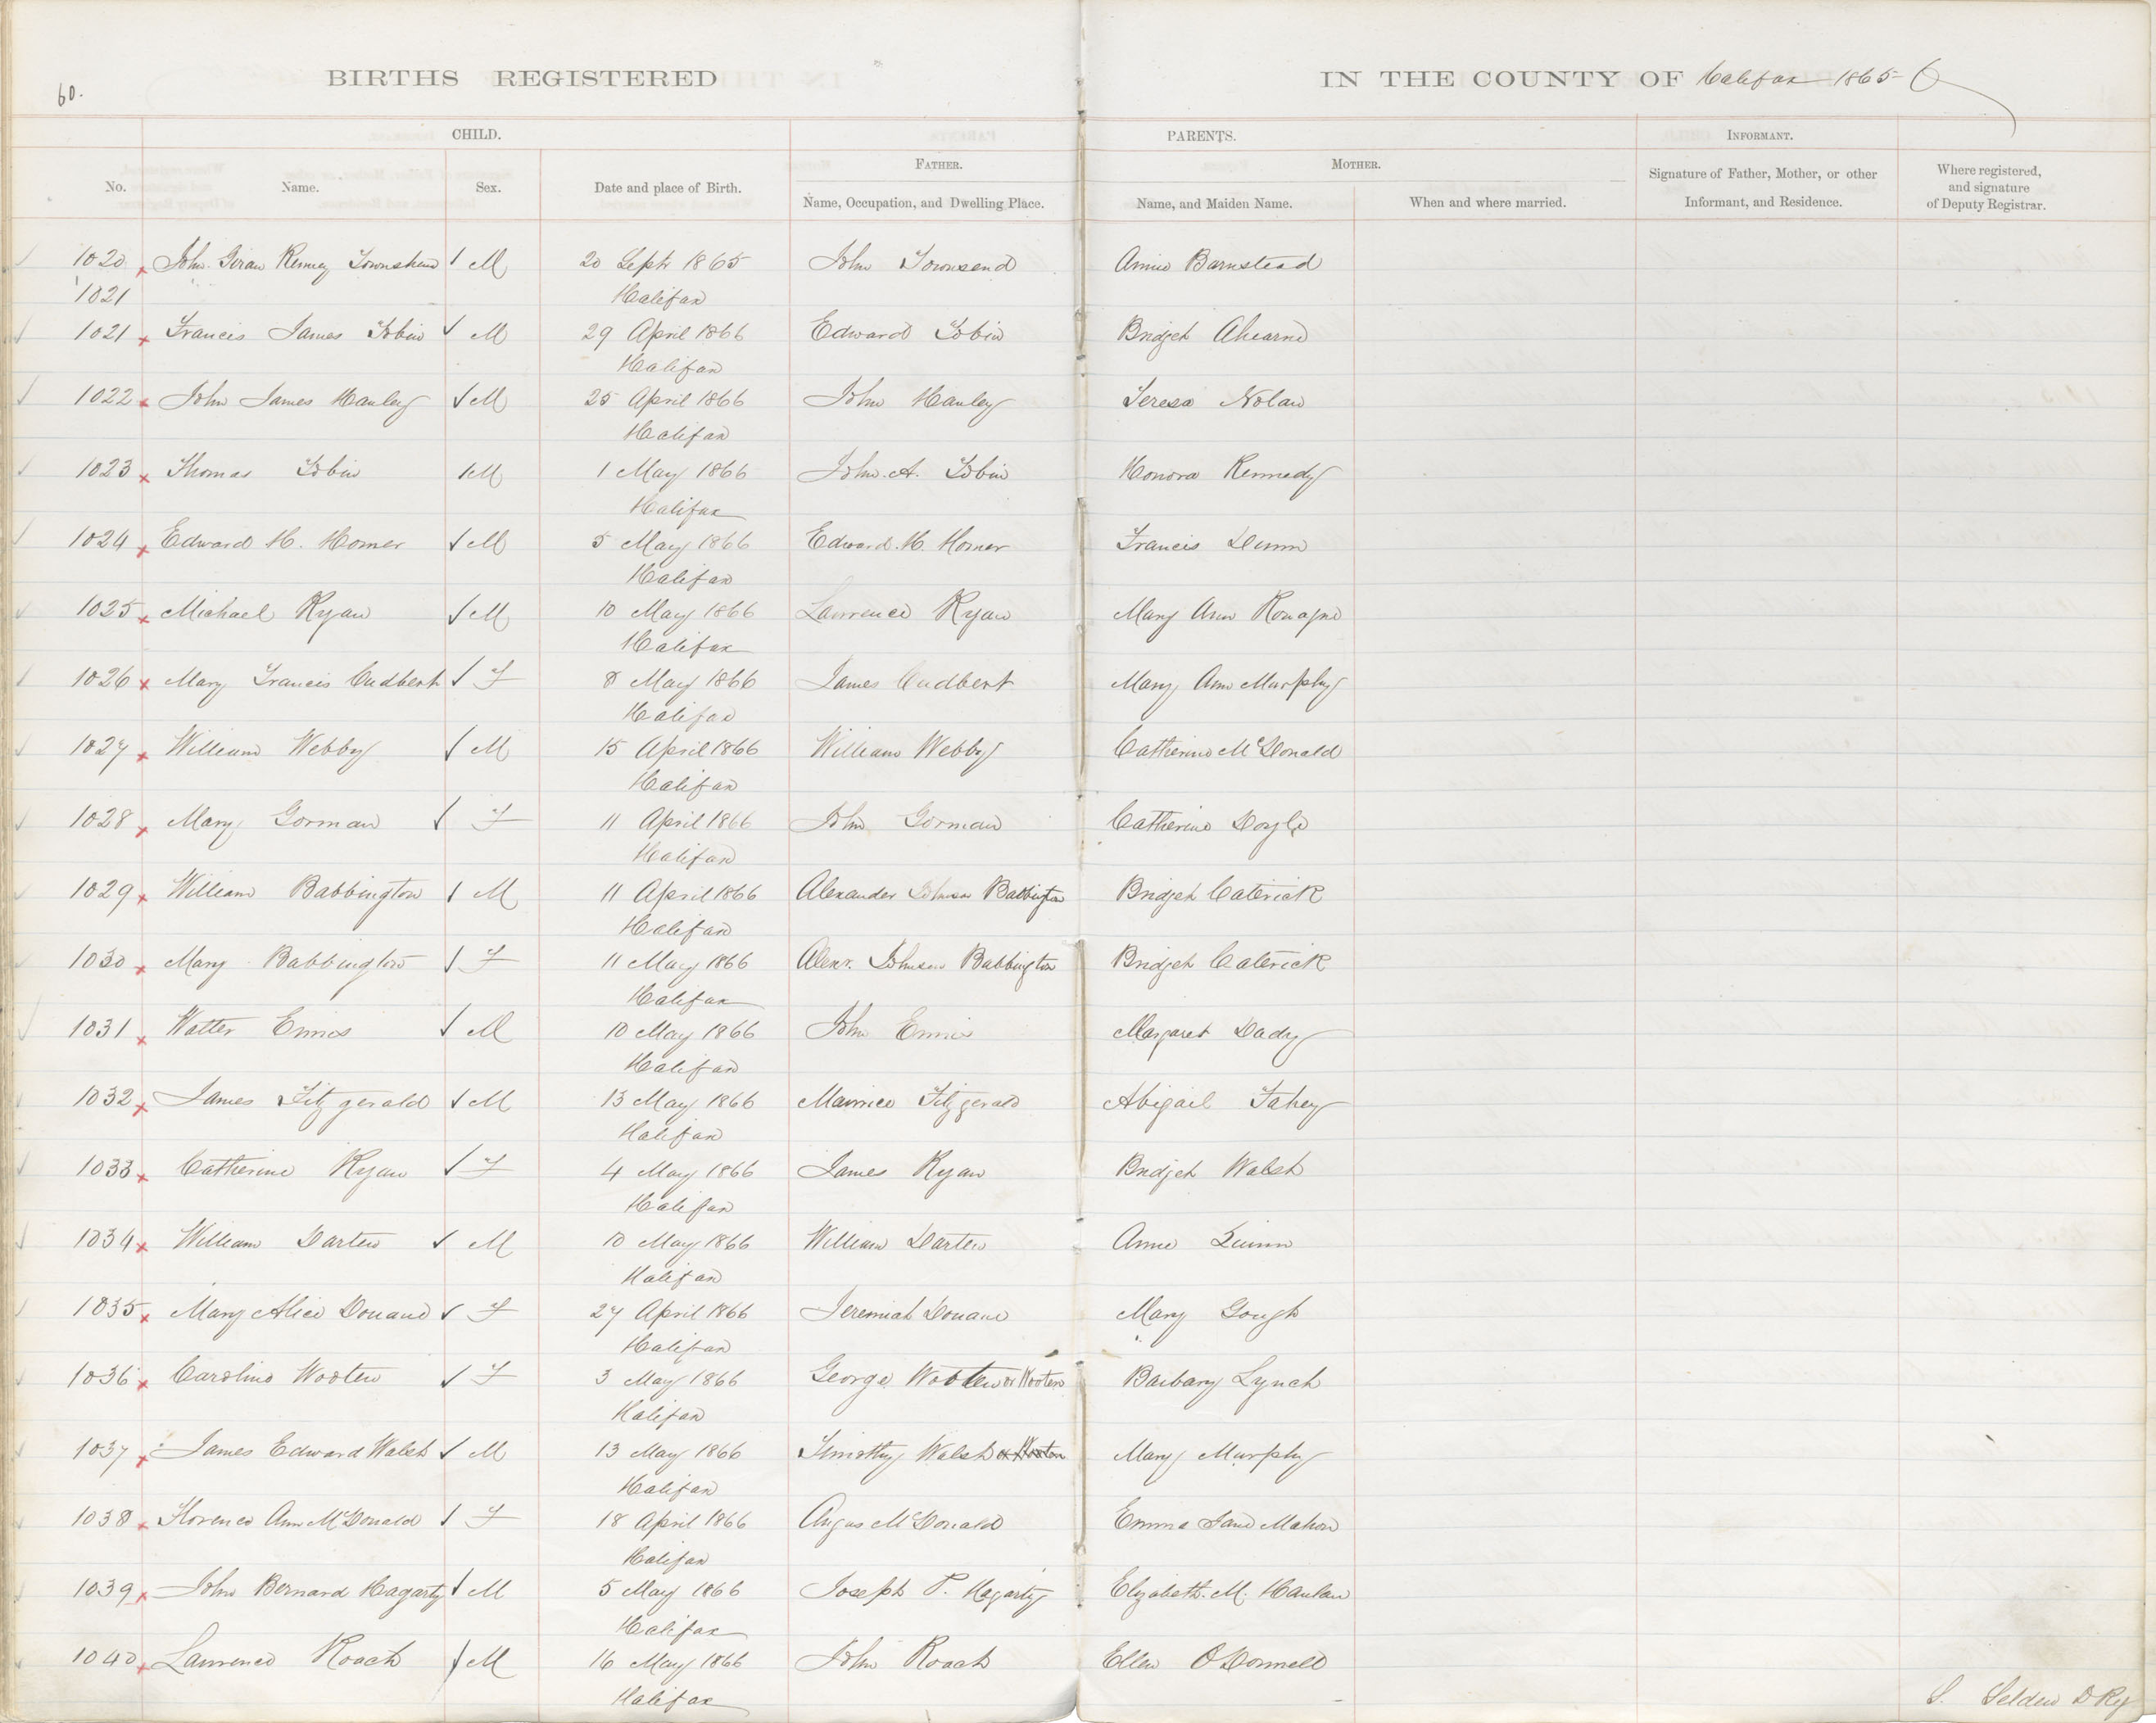 60.
BIRTHS REGISTERED IN THE COUNTY OF Halifax 1865-6
CHILD. PARENTS. INFORMANT.
FATHER. MOTHER.
No. Name. Sex. Date and place of Birth. Name, Occupation, and Dwelling Place. Name, and Maiden Name. When and where married. Signature of Father, Mother, or other Informant, and Residence. Where registered, and signature of Deputy Registrar.
1020 John Kenney Townshend M 20 Sept 1865 John Townsend Annie Barnstead
1021 Halifax
1021 Francis James Tobin M 29 April 1866 Edward Tobin Bridget Ahearne
Halifax
1022 John James Hanley M 25 April 1866 John Hanley Teresa Nolan
Halifax
1023 Thomas Tobin M 1 May 1866 John A. Tobin Honora Kennedy
Halifax
1024 Edward H. Horner M 5 May 1866 Edward H. Horner Francis Dunn
Halifax
1025 Michael Ryan M 10 May 1866 Lawrence Ryan Mary Ann Ronayne
Halifax
1026 Mary Francis Cudbert F 8 May 1866 James Cudbert Mary Ann Murphy
Halifax
1027 William Webby M 15 April 1866 William Webby Catherine McDonald
Halifax
1028 Mary Gorman F 11 April 1866 John Gorman Catherine Doyle
Halifax
1029 William Babbington M 11 April 1866 Alexander Johnson Babbington Bridget Caterick
Halifax
1030 Mary Babbington F 11 May 1866 Alexr. Johnson Babbington Bridget Caterick
Halifax
1031 Walter Ennis M 10 May 1866 John Ennis Margaret Dady
Halifax
1032 James Fitzgerald M 13 May 1866 Maurice Fitzgerald Abigail Fahey
Halifax
1033 Catherine Ryan F 4 May 1866 James Ryan Bridget Walsh
Halifax
1034 William Darten M 10 May 1866 William Darten Anne Quinn
Halifax
1035 Mary Alice Donane F 27 April 1866 Jeremiah Donane Mary Gough
Halifax
1036 Caroline Wooten F 3 May 1866 George Wooten or Wooten Barbary Lynch
Halifax
1037 James Edward Walsh M 13 May 1866 Timothy Walsh or Wooten Mary Murphy
Halifax
1038 Florence Ann McDonald F 18 April 1866 Angus McDonald Emma Jane Mahon
Halifax
1039 John Bernard Hagarty M 5 May 1866 Joseph P. Hagarty Elizabeth M. Hanlan
Halifax
1040 Lawrence Roach M 16 May 1866 John Roach Ellen O'Donnell
Halifax S. Selden D Rg